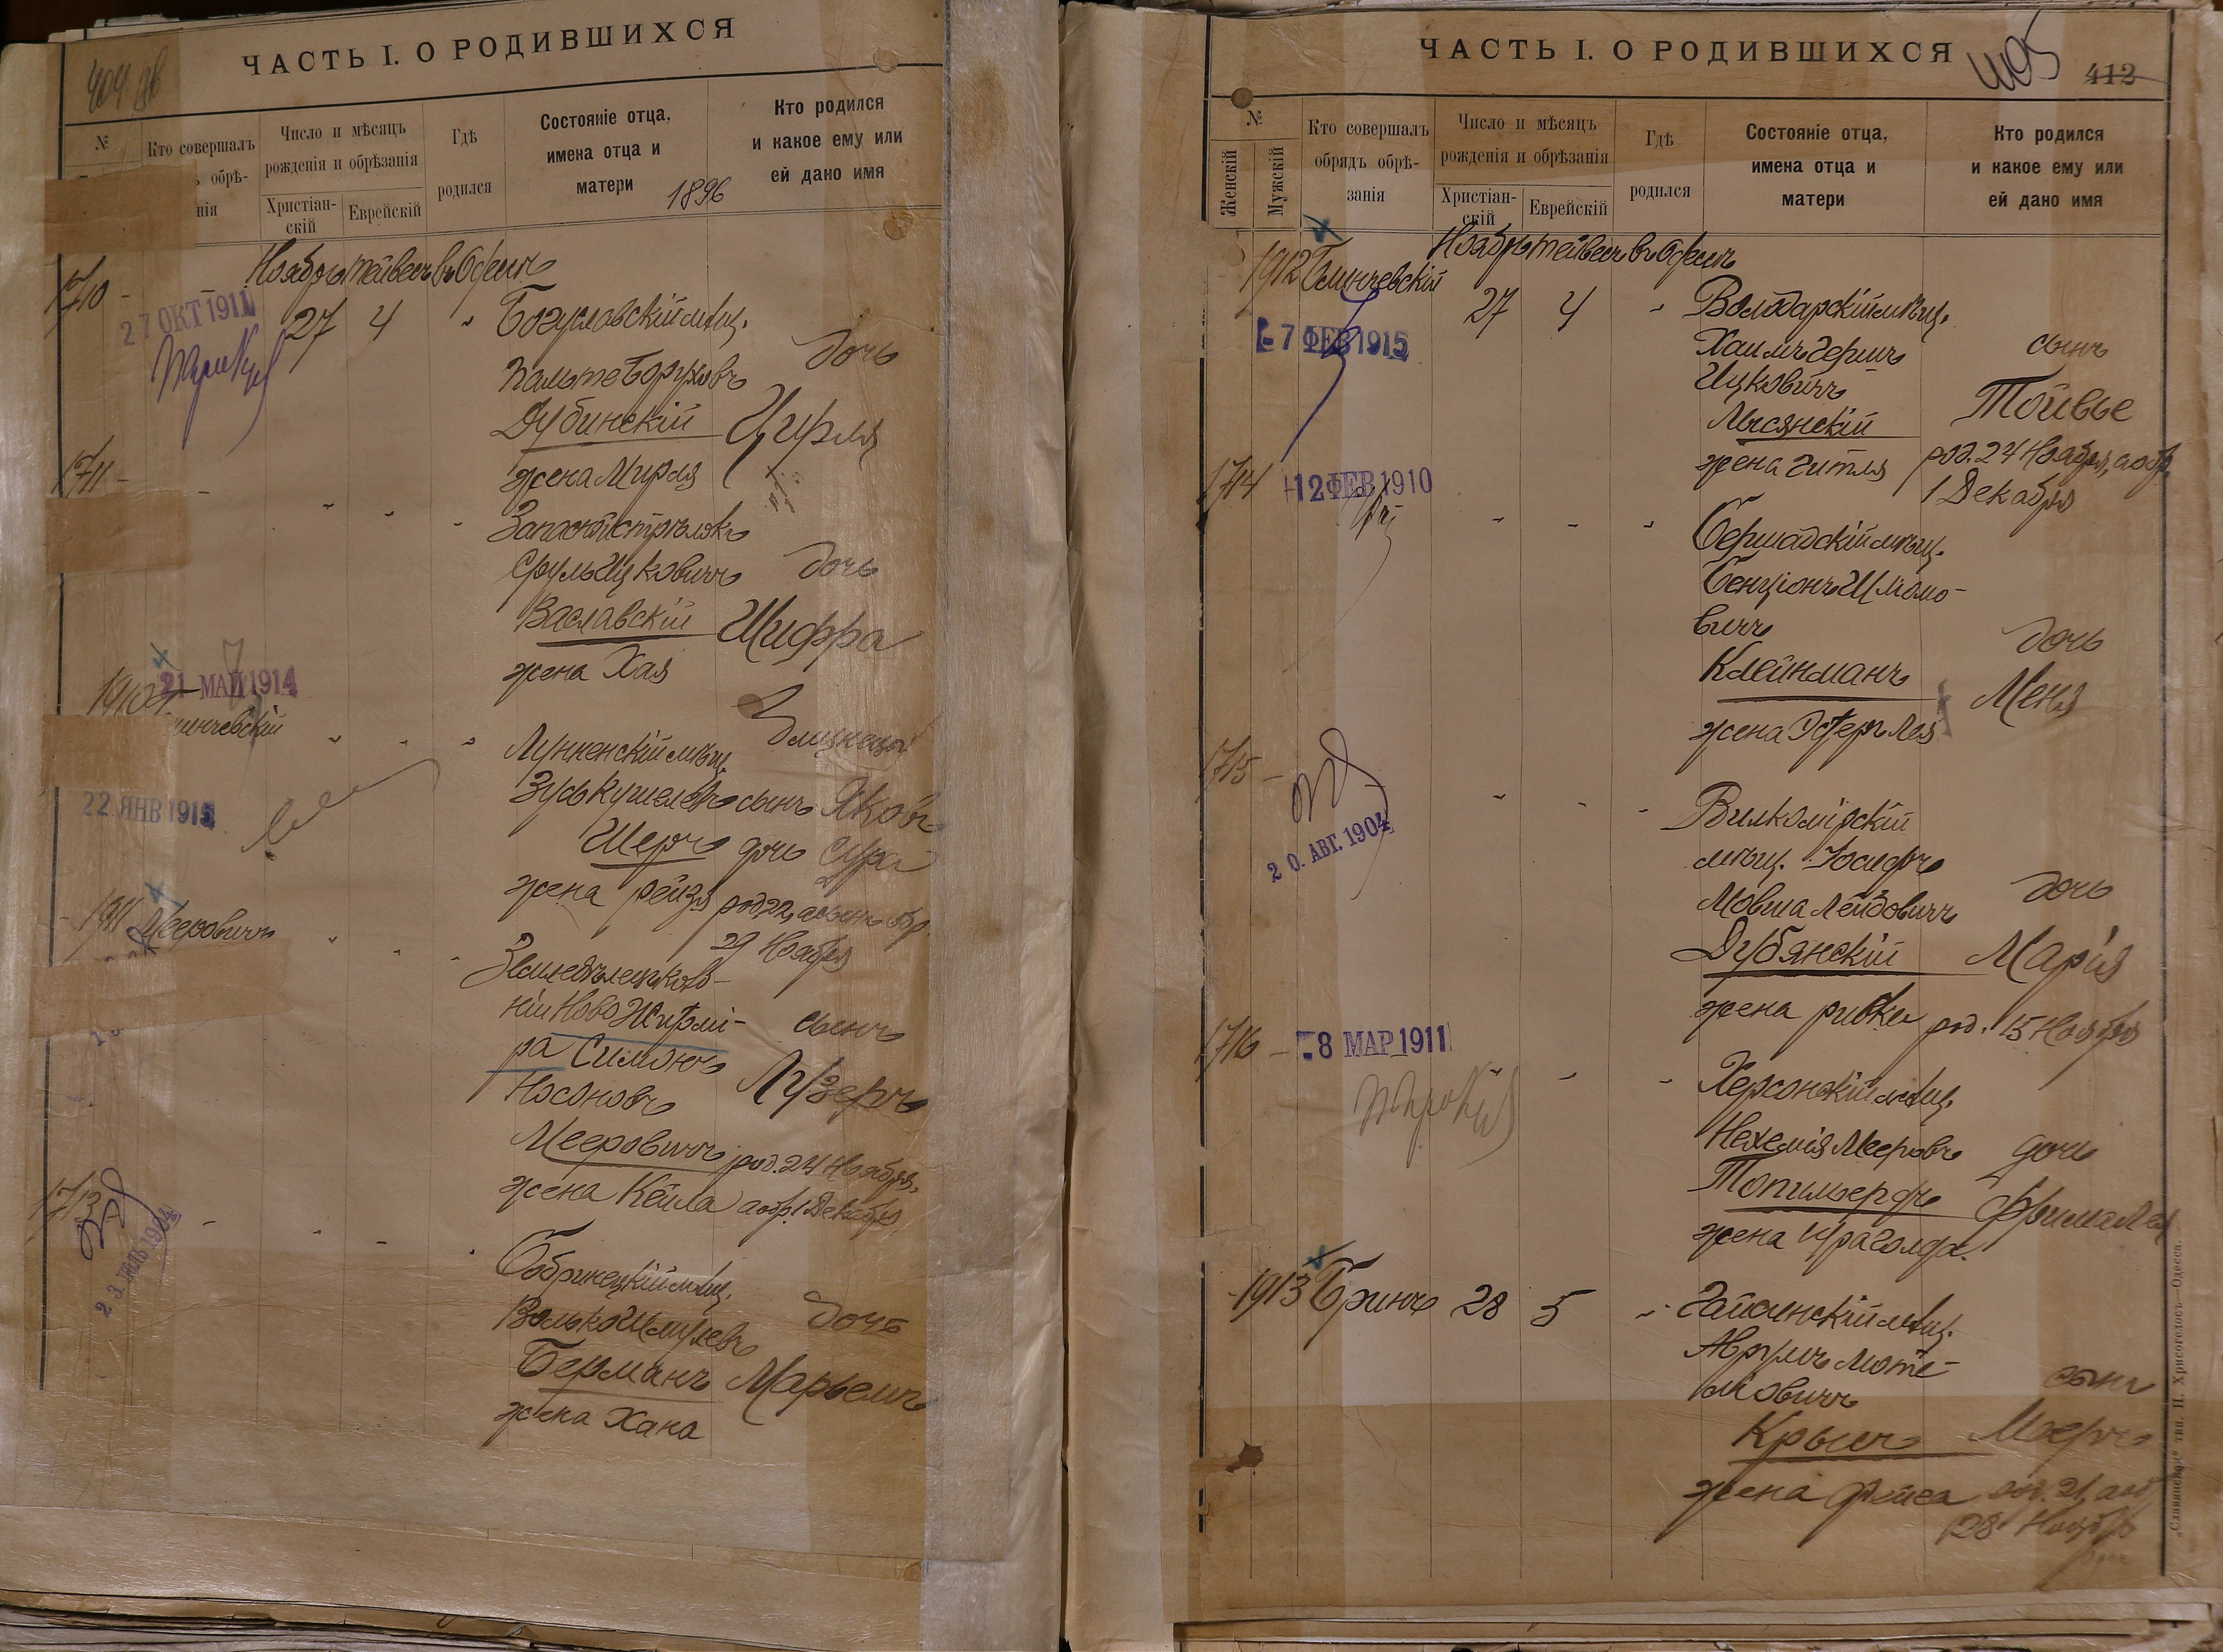 ЧАСТЬ I. О РОДИВШИХСЯ
№
Кто совершалъ
обрѣ-
нія
Число и мѣсяцъ
рожденія и обрѣзанія
Христіан-
скій
Еврейскій
Гдѣ
родился
Состояніе отца,
имена отца и
матери
1896
Кто родился
и какое ему или
ей дано имя
Ноябрь Тейвесъ въ Одессѣ
1710
27 ОКТ 1911
27 4 "
Богуславскій мѣщ.
дочь
Дубинскій Цирля
жена Мирля
1711
Запасной стрѣлокъ
Сруль Ицковичъ дочь
Заславскій Шифра
жена Хая
21 МАЙ 1914
близнецы
Зусь Кушелевъ сынъ Яковъ
22 ЯНВ 1915
Шеръ дочь Сура
жена Рейзя род. 22, а сынъ обр.
29 Ноября
1911 Мееровичъ
ніи Ново Житомі- сынъ
ра Симонъ
Носоновъ Лузеръ
Мееровичъ род. 24 Ноября,
жена Кейла а обр. 1 Декабря
1713
23 1904
Бобринецкій мѣщ.
Волько Шмулевъ дочь
Берманъ Марьемъ
жена Хана
ЧАСТЬ I. О РОДИВШИХСЯ
405
412
№
Женскій
Мужскій
Кто совершалъ
обрядъ обрѣ-
занія
Число и мѣсяцъ
рожденія и обрѣзанія
Христіан-
скій
Еврейскій
Гдѣ
родился
Состояніе отца,
имена отца и
матери
Кто родился
и какое ему или
ей дано имя
Ноябрь Тейвесъ въ Одессѣ
1912
27 4 "
Володарскій мѣщ.
7 ФЕВ 1915
Хаимъ Гершъ сынъ
Ицковичъ
Тойвье
Лысянскій
жена Гитля род. 24 Ноября, а обр.
1 Декабря
1714
12 ФЕВ 1910
Бершадскій мѣщ.
Бенціонъ Шлiомо-
вичъ
дочь
Клейнманъ
Меня
жена Эстеръ Лея
1715
20. АВГ. 1904
Вилкомірскій
мѣщ. Іосифъ
Мовша Лейбовичъ дочь
Дубянскій Марія
жена Ривка род. 15 Ноября
1716
8 МАР 1911
Херсонскій мѣщ.
Нехемія Мееровъ дочь
жена
1913 Бринъ 28 5 "
Гайсинскій мѣщ.
Аврумъ Моте-
левичъ сынъ
Крымъ Мееръ
жена Фейга род. 21, а обр.
28 Ноября
„Славянская“ тип. Н. Хрисогелосъ—Одесса.